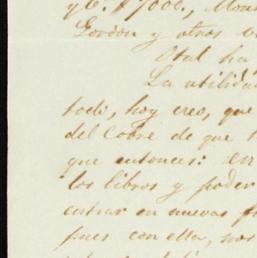 y Ca. $7000., Mont
Gordon y otros v
Otal ha
La utilidad
todi, hoy creo, que
del Cobre de que h
que entonces: en
los libros y poder
entrar en nuevas f
pues con ella, nos